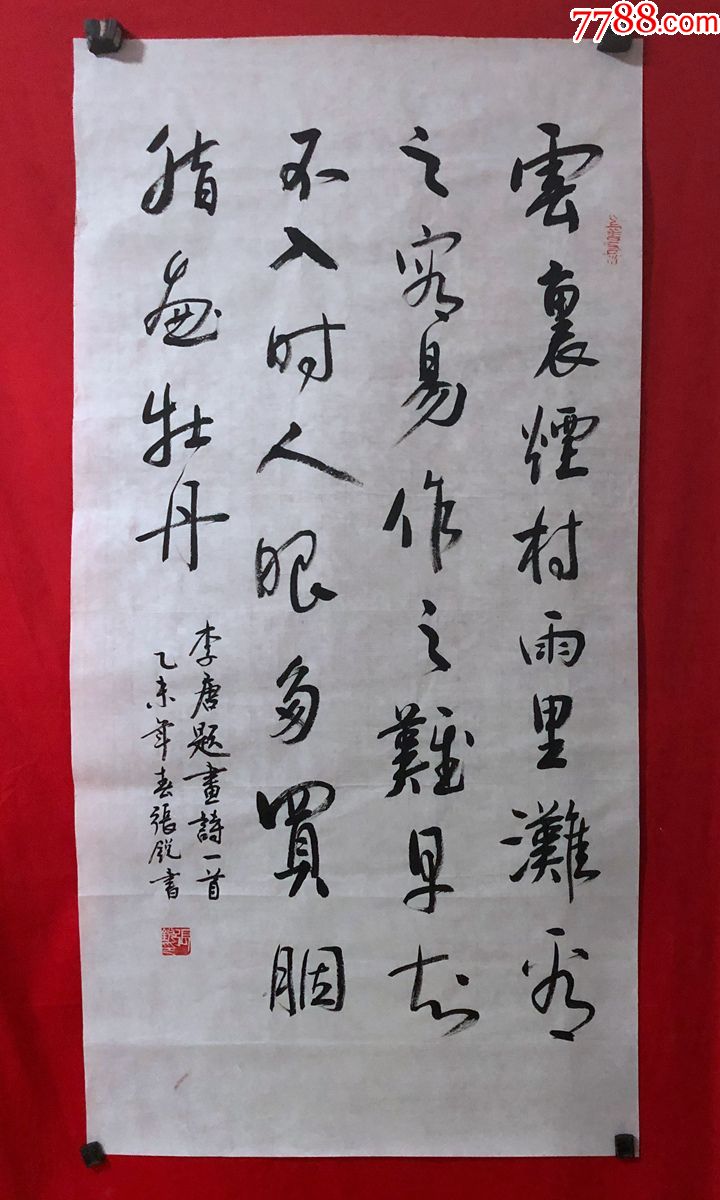 雲裏煙村雨里灘看
之容易作之難早知
不入时人眼多買胭
脂畫牡丹
李唐題畫詩一首
乙未年春張銳書
7788.com